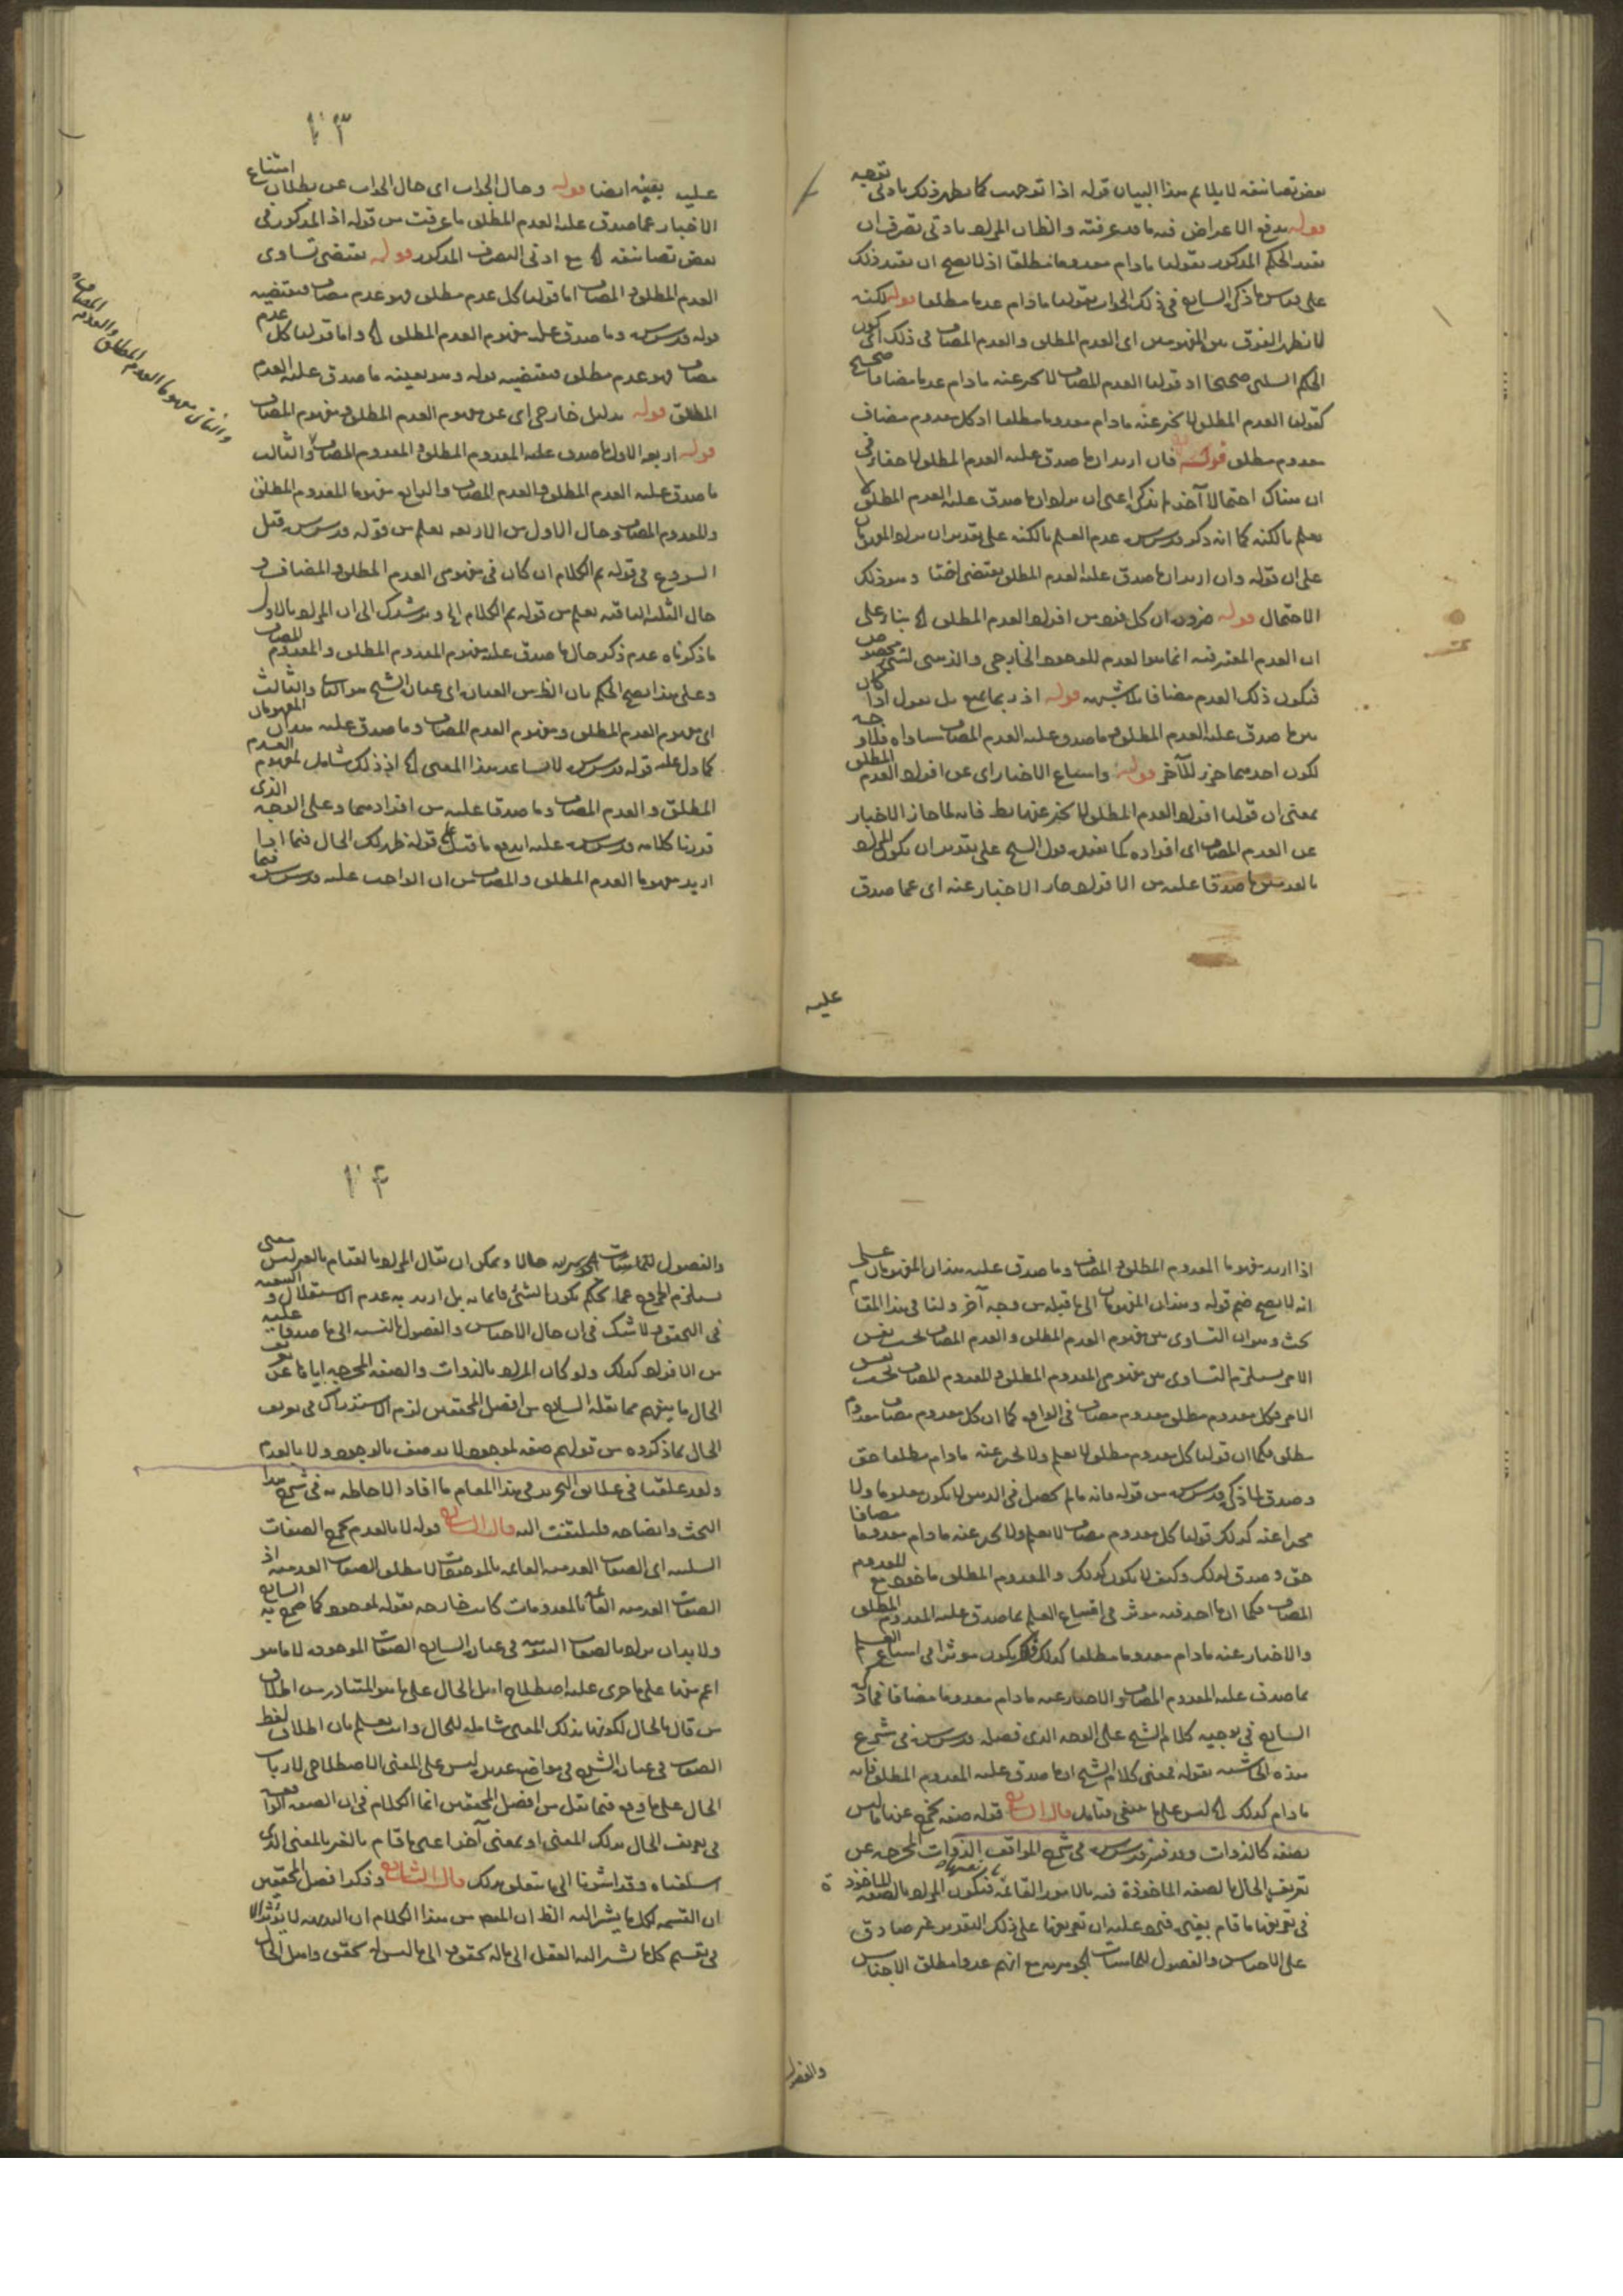 بعض تصانيفه لا يلايم هذا البيان قوله اذا توجهت كما يظهر ذلك بادنى توجه
قوله يدفع الاعراض فيه ما قد عرفته والظان المراد بادنى تصرف ان
يقيد الحكم المذكور بقولنا مادام معدوما مطلقا اذ لا يصح ان يقيد ذلك
على قياس ما ذكره الشارح في ذلك الجواب بقولنا مادام عدما مطلقا قوله لكنه
لا يظهر الفرق بين المفهومين اى العدم المطلق والعدم المضاف في ذلك اى كون
الحكم السلبي صحيحا اذ قولنا العدم المضاف لا يخبر عنه مادام عدما مضافا صحيح
كقولنا العدم المطلق لا يخبر عنه مادام معدوما مطلقا اذ كل معدوم مضاف
معدوم مطلق قوله فان اريد ان ما صدق عليه العدم المطلق لا خفاء في
ان هناك احتمالا آخر لم يذكر اعنى ان يراد ان ما صدق عليه العدم المطلق لا
يعلم بالكنه كما انه ذكر قدس سره عدم العلم بالكنه على تقدير ان يراد المفهومان
على ان قوله وان اريد ان ما صدق عليه العدم المطلق يقتضى وهو ذلك
الاحتمال قوله ضرورة ان كل فرد من افراد العدم المطلق الخ بناء على
ان العدم المعتبر فيه انما هو العدم للوجود الخارجي والذهني لشئ مخصوص
فيكون ذلك العدم مضافا بلا شبهة قوله اذ ربما يمنع بل نقول اذا كان
بين ما صدق عليه العدم المطلق وما صدق عليه العدم المضاف مساواة فلا وجه
لكون احدهما جزء للآخر قوله وامتناع الاخبار اى عن افراد العدم المطلق
بمعنى ان قولنا افراد العدم المطلق لا يخبر عنها بط فانه لما جاز الاخبار
عن العدم المضاف اى افراده كما يفيده قول الشيخ على تقدير ان يكون المراد
بالعدمين ما صدقا عليه من الافراد جاز الاخبار عنه اى عما صدق
عليه
٢٣
عليه بعينه ايضا قوله وحال الجواب اى حال الجواب عن بطلان امتناع
الاخبار عما صدق عليه العدم المطلق ما عرفت من قوله اذ المذكور في
بعض تصانيفه الخ مع ادنى التصرف المذكور قوله يقتضى تساوى
العدم المطلق والمضاف اما قولنا كل عدم مطلق فهو عدم مضاف فيقتضيه
قوله قدس سره وما صدق عليه مفهوم العدم المطلق الخ واما قولنا كل عدم
مضاف فهو عدم مطلق فيقتضيه قوله وهو بعينه ما صدق عليه العدم
المطلق قوله بدليل خارجي اى عن مفهوم العدم المطلق ومفهوم المضاف
قوله اربعة الاول ما صدق عليه المعدوم المطلق والمعدوم المضاف والثالث
ما صدق عليه العدم المطلق والعدم المضاف والرابع مفهوما المعدوم المطلق
والمعدوم المضاف وحال الاول من الاربعة يعلم من قوله قدس سره قبل
الشروع في قوله ثم الكلام ان كان في مفهومى العدم المطلق والمضاف و
حال الثلثة الباقية يعلم من قوله ثم الكلام الخ ويرشدك الى ان المراد بالاول
ما ذكرناه عدم ذكر حال ما صدق عليه مفهوم المعدوم المطلق والمعدوم المضاف
وعلى هذا يصح الحكم بان الظ من العبارة اى عبارة الشيخ هو الثانى والثالث
اى مفهوم العدم المطلق ومفهوم العدم المضاف وما صدق عليه هذان المفهومان
كما دل عليه قوله قدس سره لا يساعد هذا المعنى الخ اذ ذلك شامل لمفهوم العدم
المطلق والعدم المضاف وما صدقا عليه من افرادهما وعلى الوجه الذى
قررنا كلامه قدس سره عليه اندفع ما قيل على قوله ظهر لك الحال فيما اذا
اريد مفهوما العدم المطلق والمضاف من ان الواجب عليه قدس سره فيما
والثانى مفهوما العدم المطلق والعدم المضاف
اذا اريد مفهوما المعدوم المطلق والمضاف وما صدق عليه هذان المفهومان على
انه لا يصح ضم قوله وهذان المفهومان الى ما قبله من وجه آخر ولنا في هذا المقام
بحث وهو ان التساوى بين مفهوم العدم المطلق والعدم المضاف بحسب نفس
الامر يستلزم التساوى بين مفهومى المعدوم المطلق والمعدوم المضاف بحسب نفس
الامر فكل معدوم مطلق معدوم مضاف في الواقع كما ان كل معدوم مضاف معدوم
مطلق فكما ان قولنا كل معدوم مطلق لا يعلم ولا يخبر عنه مادام مطلقا حق
وصدق لما ذكره قدس سره من قوله فانه ما لم يحصل في الذهن لا يكون معلوما ولا
مخبرا عنه كذلك قولنا كل معدوم مضاف لا يعلم ولا يخبر عنه مادام معدوما مضافا
حق وصدق لذلك وكيف لا يكون كذلك والمعدوم المطلق ماخوذ مع المعدوم
المضاف فكما ان ما اخذ فيه مؤثر في امتناع العلم بما صدق عليه المعدوم المطلق
والاخبار عنه مادام معدوما مطلقا كذلك يكون مؤثرا في امتناع العلم
بما صدق عليه المعدوم المضاف والاخبار عنه مادام معدوما مضافا فما ذكره
الشارح في توجيه كلام الشيخ على الوجه الذى فصله قدس سره في شرح
هذه الحاشية بقوله فمعنى كلام الشيخ ان ما صدق عليه المعدوم المطلق فانه
مادام كذلك الخ ليس على ما ينبغى فتامل قال الشارح قوله صفة يخرج عنها ما ليس
بصفة كالذوات وقد فسر قدس سره في شرح المواقف الذوات المخرجة عن
تعريف الحال بالصفة الماخوذة فيه بالامور القائمة بانفسها فيكون المراد بالصفة الماخوذة
في تعريفها ما قام بغيره فيرد عليه ان تعريفها على ذلك التقدير غير صادق
على الاجناس والفصول للماهيات الجوهرية مع انهم عدوا مطلق الاجناس
والفصول
٢٤
والفصول للماهيات الجوهرية حالا ويمكن ان يقال المراد بالقيام بالغير ليس معنى
يستلزم الخروج عما يحكم بكون الشئ قائما به بل اريد به عدم الاستقلال والتبعية
في التحقق ولا شك في ان حال الاجناس والفصول بالنسبة الى ما صدقا عليه
من الافراد كذلك ولو كان المراد بالذوات والصفة المخرجة اياها عن تعريف
الحال ما يفهم مما نقله الشارح من افضل المحققين لزم الاستدراك في تعريف
الحال بما ذكروه من قولهم صفة لموجود لا يوصف بالوجود ولا بالعدم
ولقد علقنا في علائق التجريد في هذا المقام ما افاد الاحاطة به في شرح هذا
البحث وايضاحه فليلتفت اليه قال الشارح قوله لا بالعدم يخرج الصفات
السلبية اى الصفات العدمية القائمة بالموجودات لا مطلق الصفات العدمية اذ
الصفات العدمية القائمة بالمعدومات كانت خارجة بقوله لموجود كما صرح به الشارح
ولا بد ان يراد بالصفات الثبوتية في عبارة الشارح الصفات الموجودة لا ما هو
اعم منها على ما جرى عليه اصطلاح اهل الحال على ما هو المتبادر من اطلاق
من قال بالحال لكونها بذلك المعنى شاملة للحال وانت تعلم بان اطلاق لفظ
الصفات في عبارة الشرح في مواضع عديدة ليس على المعنى الاصطلاحى لارباب
الحال على ما وقع فيما نقل من افضل المحققين انما الكلام في ان الصفة الواقعة
في تعريف الحال بذلك المعنى او بمعنى آخر اعنى ما قام بالغير بالمعنى الذى
اسلفناه وقد اشرنا الى ما يتعلق بذلك قال الشارح وذكر افضل المحققين
ان القسمة لكل ما يشير اليه الظ ان المفهوم من هذا الكلام ان
في تقسيم كل ما يشير اليه العقل الى ما له تحقق والى ما ليس له تحقق واهل الحال